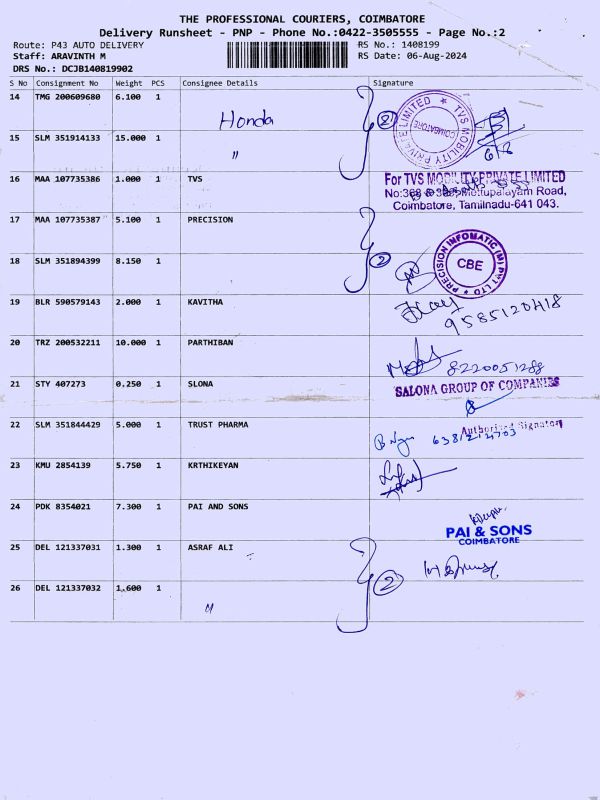 THE PROFESSIONAL COURIERS, COIMBATORE
Delivery Runsheet - PNP - Phone No.:0422-3505555 - Page No.:2
Route: P43 AUTO DELIVERY RS No.: 1408199
Staff: ARAVINTH M RS Date: 06-Aug-2024
DRS No.: DCJB140819902
S No Consignment No Weight PCS Consignee Details Signature
14 TMG 200609680 6.100 1 Honda 2
TVS MOBILITY PRIVATE LIMITED
COIMBATORE
6/8
15 SLM 351914133 15.000 1 "
16 MAA 107735386 1.000 1 TVS
For TVS MOBILITY PRIVATE LIMITED
Mettupalayam Road,
Coimbatore, Tamilnadu-641 043.
17 MAA 107735387 5.100 1 PRECISION
PRECISION INFOMATIC (M) PVT LTD
CBE
18 SLM 351894399 8.150 1 2
19 BLR 590579143 2.000 1 KAVITHA
9585120418
20 TRZ 200532211 10.000 1 PARTHIBAN
8220051288
21 STY 407273 0.250 1 SLONA
SALONA GROUP OF COMPANIES
Authorised Signatory
22 SLM 351844429 5.000 1 TRUST PHARMA
23 KMU 2854139 5.750 1 KRTHIKEYAN
24 PDK 8354021 7.300 1 PAI AND SONS
PAI & SONS
COIMBATORE
25 DEL 121337031 1.300 1 ASRAF ALI
2
26 DEL 121337032 1.600 1 "